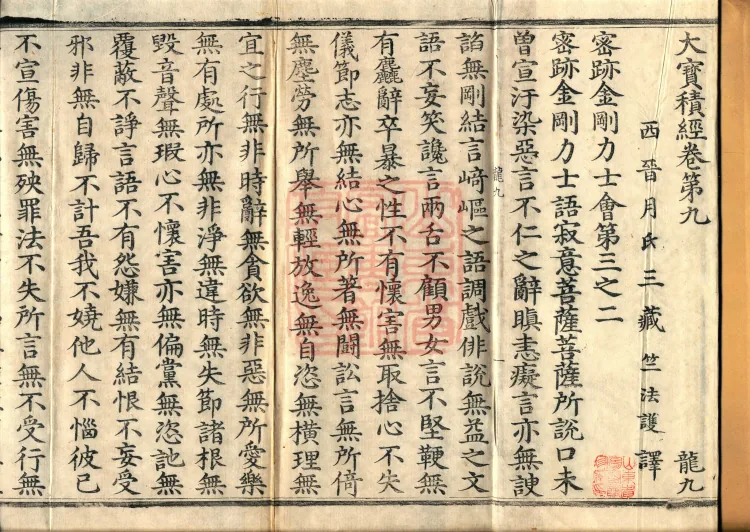 大寶積經卷第九 龍九
西晉月氏三藏竺法護 譯
密跡金剛力士會第三之二
密跡金剛力士語寂意菩薩菩薩所說口未
曾宣汙染惡言不仁之辭瞋恚癡言亦無諛
龍九
諂無剛結言崎嶇之語調戲俳說無益之文
語不妄笑讒言兩舌不顧男女言不堅鞕無
有麤辭卒暴之性不有懷害無取捨心不失
儀節志亦無結心無所著無鬪訟言無所倚
無塵勞無所舉無輕放逸無自恣無橫理無
宜之行無非時辭無貪欲無非惡無所愛樂
無有處所亦無非淨無違時無失節諸根無
毀音聲無瑕心不懷害亦無偏黨無恣訑無
覆蔽不諍言語不有怨嫌無有結恨不妄受
邪非無自歸不計吾我不嬈他人不惱彼已
不宣傷害無殃罪法不失所言無不受行無